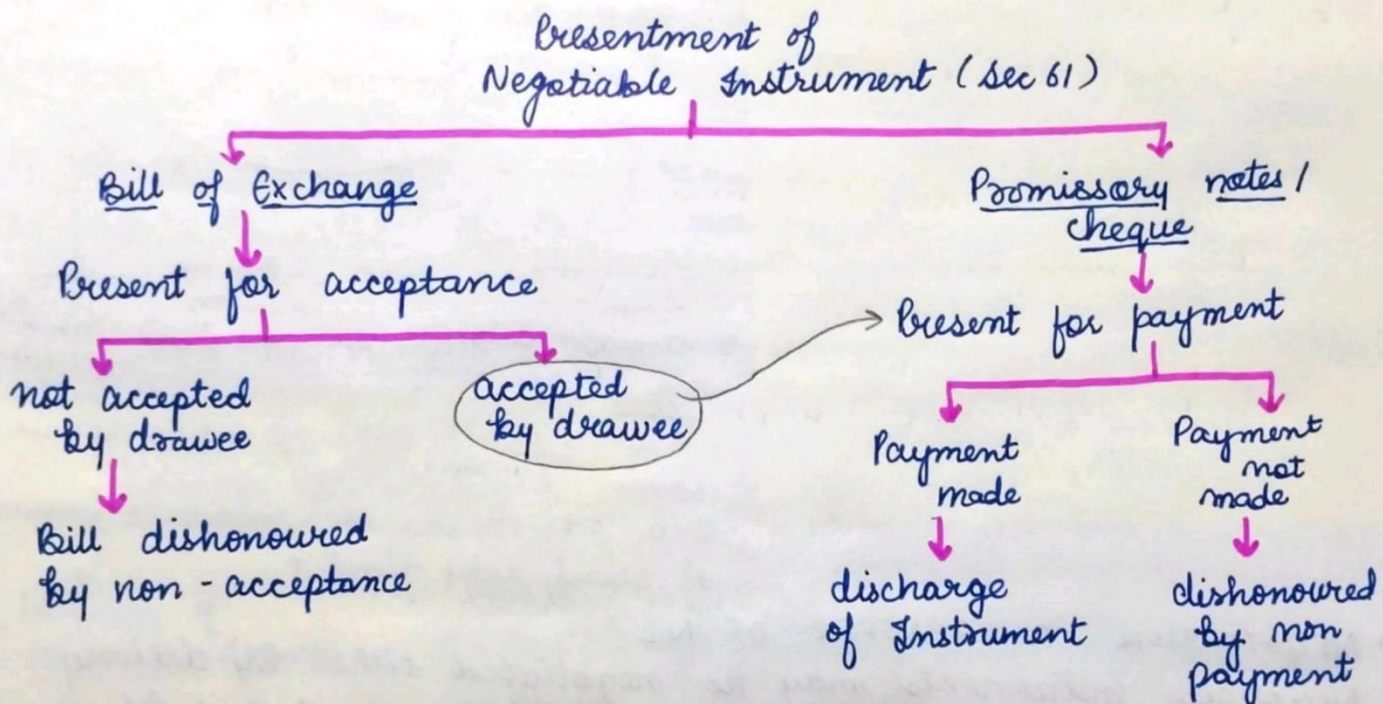 Presentment of
Negotiable Instrument (Sec 61)
Bill of Exchange
Present for acceptance
not accepted
by drawee
Bill dishonoured
by non-acceptance
accepted
by drawee
Promissory notes /
cheque
Present for payment
Payment
made
discharge
of Instrument
Payment
not
made
dishonoured
by non
payment